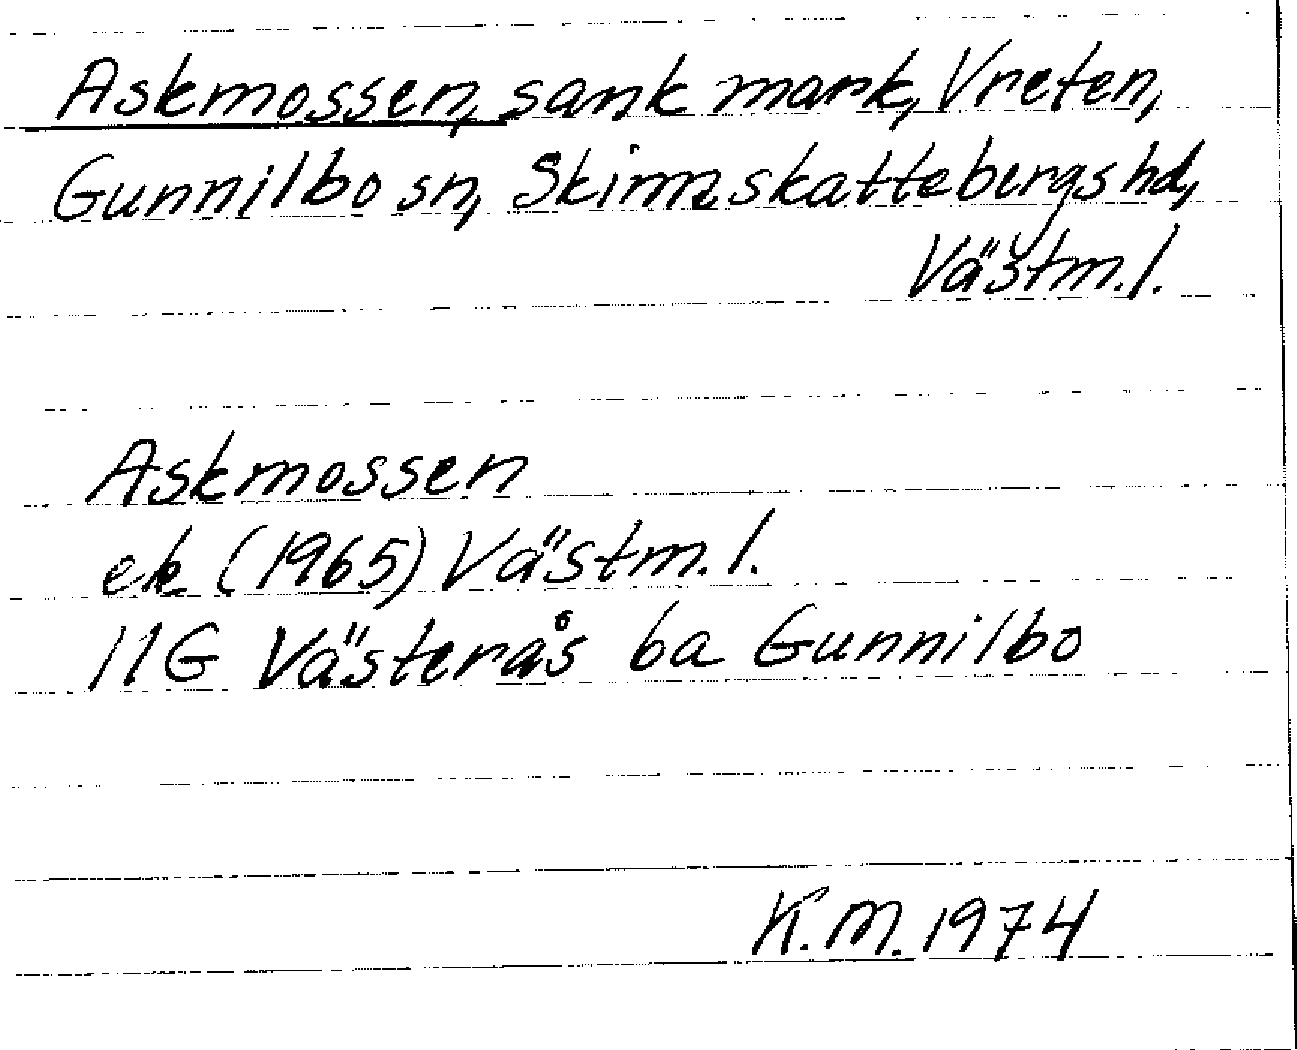 Askmossen, sank mark, Vreten,
Gunnilbo sn, Skinnskattebergs hd,
Västm. l.
Askmossen
ek (1965) Västm. l.
11G Västerås 6a Gunnilbo
K.M. 1974